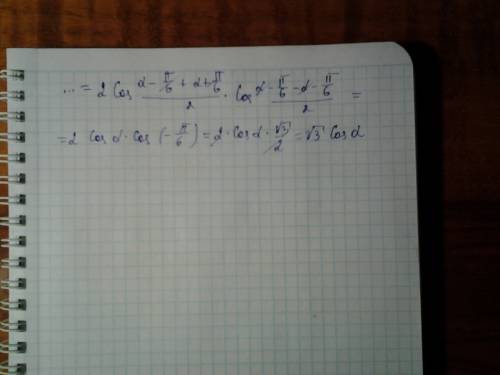 ... = 2 Cos (α - π/6 + α + π/6)/2 · Cos (α - π/6 - α - π/6)/2 =
= 2 Cos α · Cos (- π/6) = 2 · Cos α · √3/2 = √3 Cos α